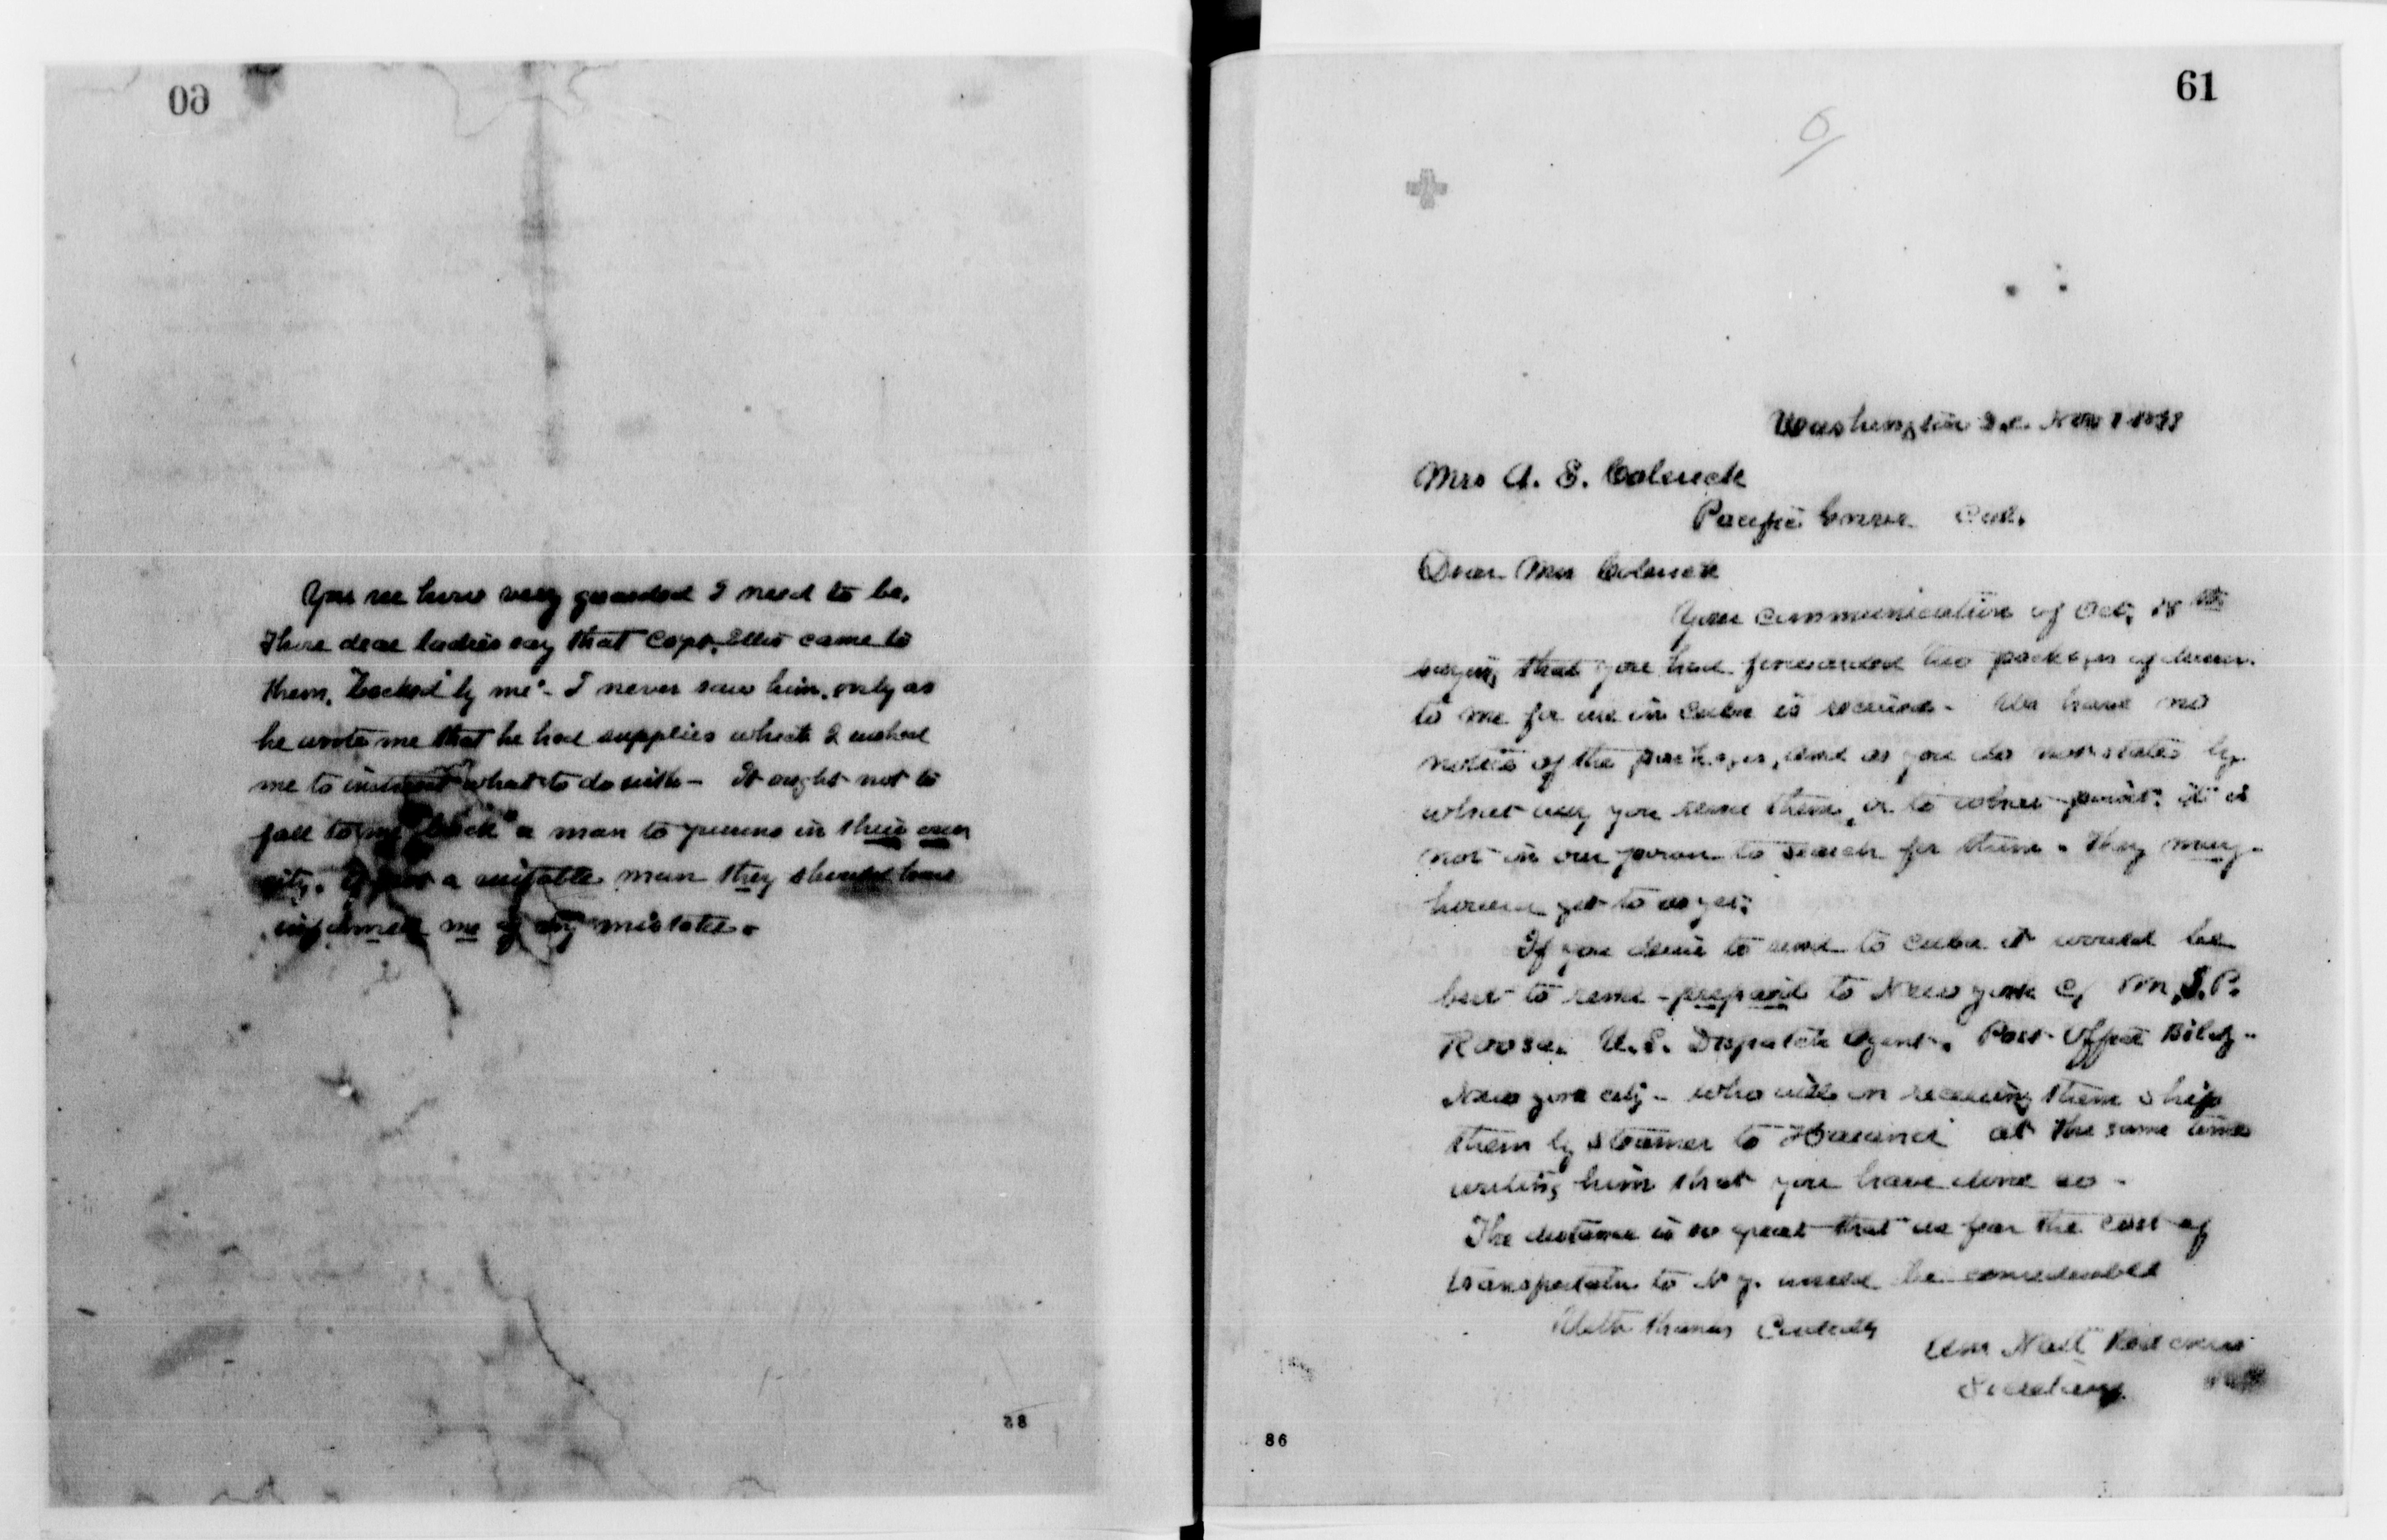 60
You see how very guarded I need to be.
These dear ladies say that Capt. Ellis came to
them, "backed by me" - I never saw him, only as
he wrote me that he had supplies which I wished
me to instruct what to do with - It ought not to
fall to me "back" a man to persons in their own
city. If not a suitable man they should have
informed me of my mistake.
88
61
Washington D.C. Nov 1898
Mrs A. S.
Pacific Grove Cal.
Dear Mrs
Your communication of Oct. 18th
saying that you had forwarded two packages of
to me for use in Cuba is received - We have no
notice of the packages, and as you do not state by
what way you send them, or to what point, it is
not in our power to search for them. They may
however get to us yet.
If you desire to send to Cuba it would be
best to send prepaid to New York c/ Mr. S. P.
Roosa. U.S. Dispatch Agent. Post Office Bildg -
New York City - who will on receiving them ship
them by steamer to Havana at the same time
writing him that you have done so -
The distance is so great that we fear the cost of
transportation to N.Y. would be considerable
With thanks Cordially
Am Natl Red Cross
Secretary
86